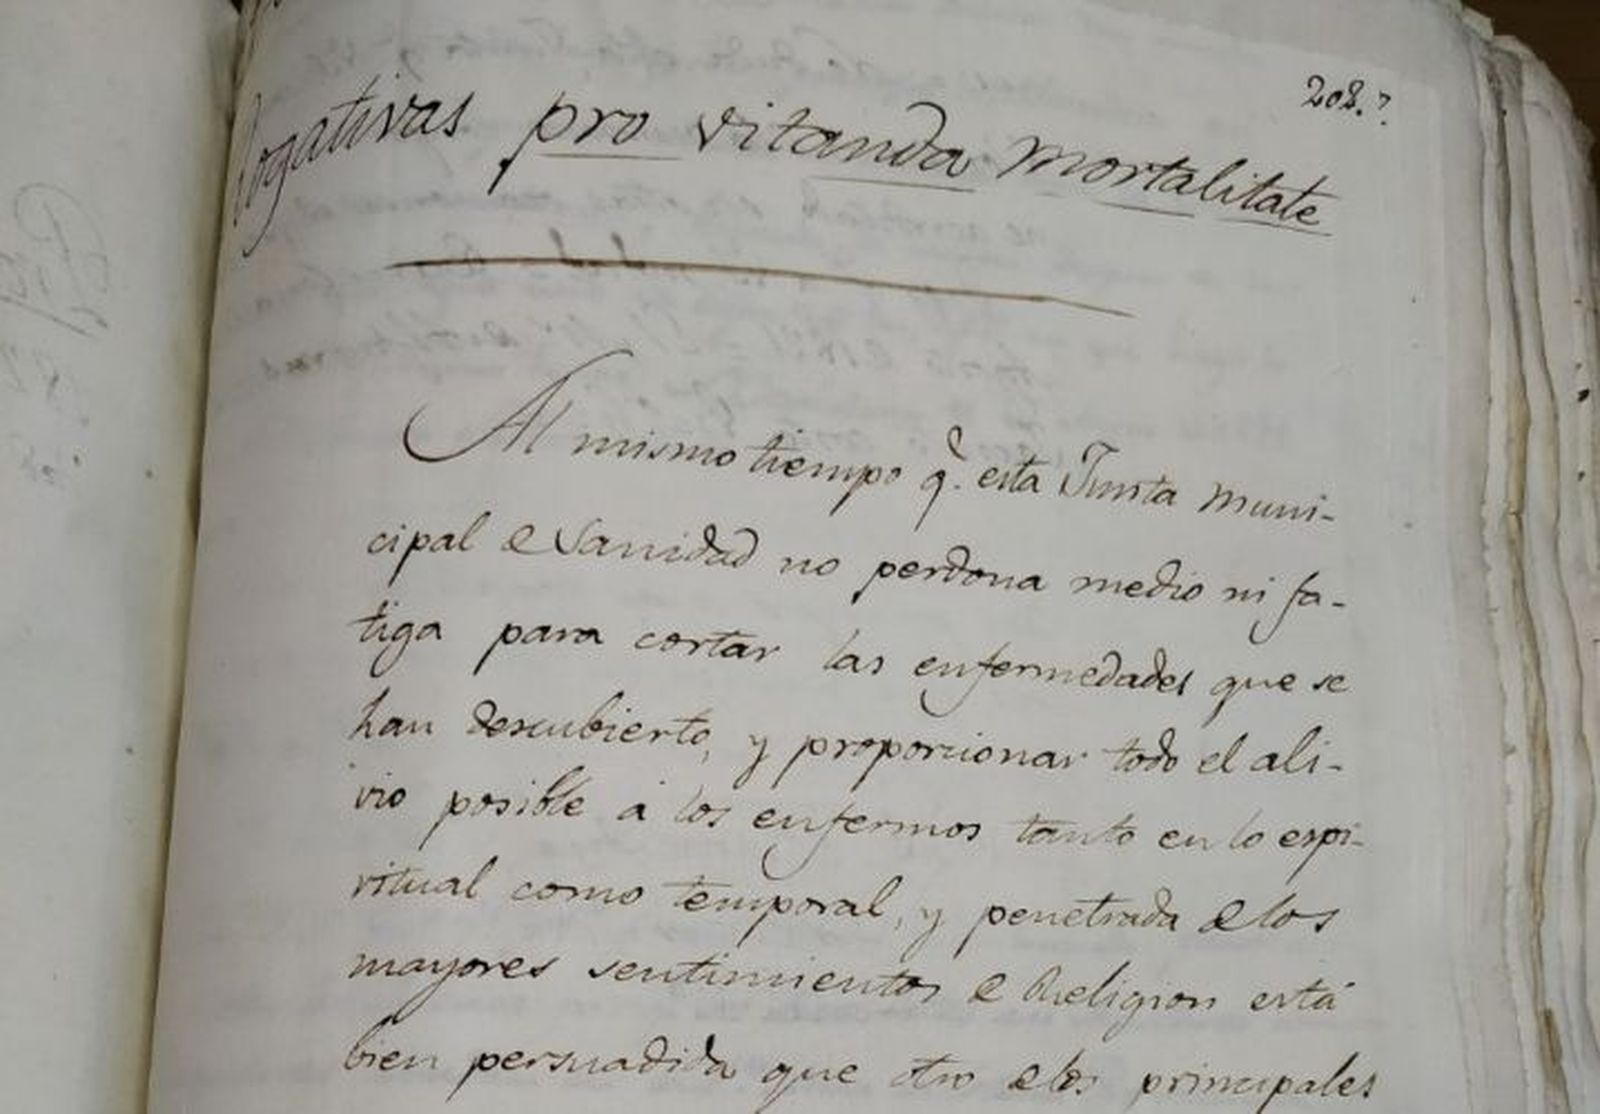 208.
Rogativas pro vitanda mortalitate
Al mismo tiempo q.e esta Junta Muni-
cipal de Sanidad no perdona medio ni fa-
tiga para cortar las enfermedades que se
han descubierto, y proporcionar todo el ali-
vio posible á los enfermos tanto en lo espi-
ritual como temporal, y penetrada de los
mayores sentimientos de Religion está
bien persuadida que otro de los principales